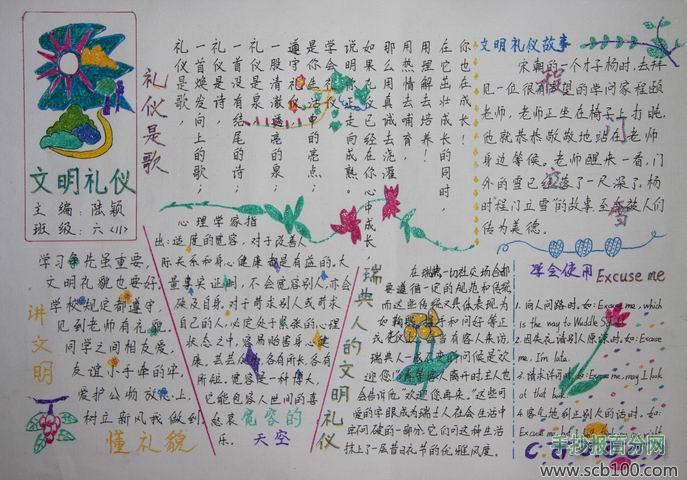 文明礼仪
主编:陆颖
班级:六〈11〉
礼仪是歌
礼仪是歌,
一首焕发向上的歌;
礼仪是诗,
一首没有结尾的诗;
礼仪是泉,
一股清澈透亮的泉;
遵守礼仪,
是你生活中的亮点;
学会礼仪,
说明你走向成熟。
如果礼仪已经在你心中成长,
那么用真诚去浇灌,
用热情去哺育,
用理解去培养!
在它成长的同时
你也在成长!
文明礼仪故事
宋朝的一个才子杨时,去拜
见一位很有名望的学问家程颐
老师,老师正坐在椅子上打盹,
他就恭恭敬敬地站在老师
身边等候。老师醒来一看,门
外的雪已经落了一尺深了。杨
时"程门立雪"的故事至今被人们
传为美德。
程门立雪
学习争先虽重要,
文明礼貌也要好,
学校规定都遵守,
见到老师有礼貌,
同学之间相友爱,
友谊小手牵的牢,
爱护公物放花上,
树立新风我做到,
讲文明
懂礼貌
心理学家指
出:适度的宽容,对于改善人
际关系和身心健康都是有益的,大
量事实证明,不会宽容别人,亦会
殃及自身。对于苛求别人或苛求
自己的人,必定处于紧张的心理
状态之中,容易妨害身心健
康。芸芸众生,各有所长,各有
所短。宽容是一种博大,
它能包容人世间的喜
怒哀
乐。
宽容的
天空
瑞典人的文明礼仪
在瑞典一切社交场合都
要遵循一定的规范和传统
而这些传统又具体表现为
瑞典人
会告诉你"欢迎您再来。"这些可
爱的字眼成为瑞士人在会生活中
牢不可破的一部分它们为这种生活
抹上了一层昔日礼节的优雅风度。
学会使用 Excuse me
1. 向人问路时,如: Excuse me, which
is the way to Waddle St
2. 因失礼请别人原谅时,如: Excuse
me, I'm late.
3. 请求许可时,如: Excuse me, may I look
at that book
4. 客气地别让别人的话时,如:
Excuse me, but I
手抄报百分网
www.scb100.com